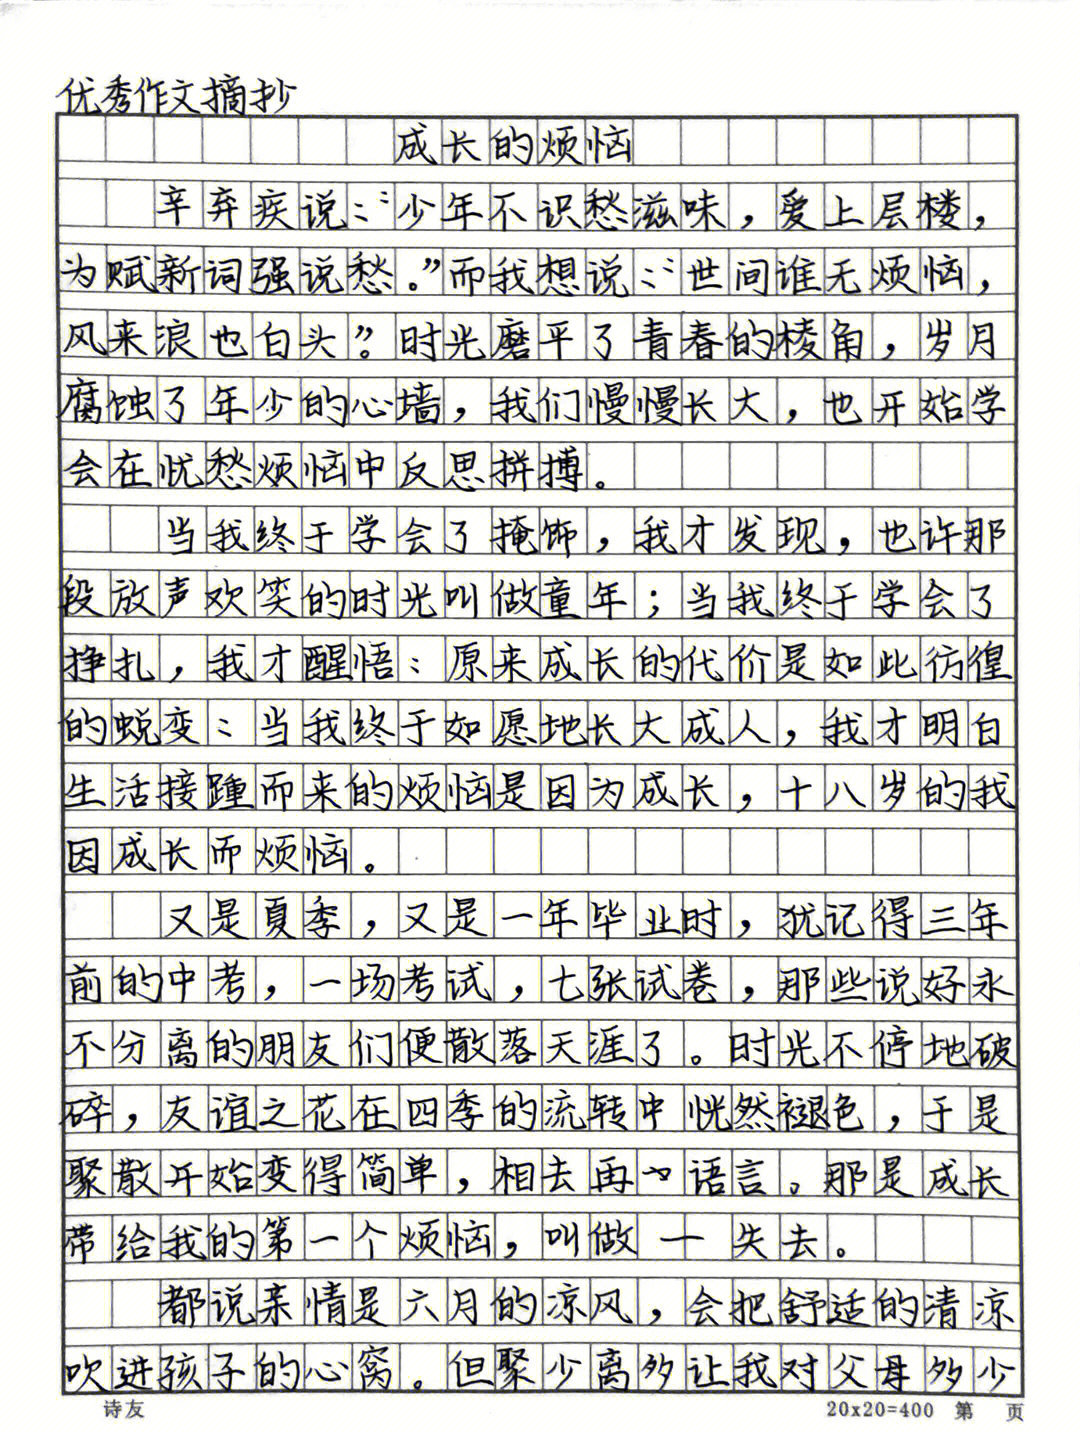 优秀作文摘抄
成长的烦恼
辛弃疾说："少年不识愁滋味，爱上层楼，
为赋新词强说愁。"而我想说："世间谁无烦恼，
风来浪也白头"。时光磨平了青春的棱角，岁月
腐蚀了年少的心墙，我们慢慢长大，也开始学
会在忧愁烦恼中反思拼搏。
当我终于学会了掩饰，我才发现，也许那
段放声欢笑的时光叫做童年；当我终于学会了
挣扎，我才醒悟：原来成长的代价是如此彷徨
的蜕变：当我终于如愿地长大成人，我才明白
生活接踵而来的烦恼是因为成长，十八岁的我
因成长而烦恼。
又是夏季，又是一年毕业时，犹记得三年
前的中考，一场考试，七张试卷，那些说好永
不分离的朋友们便散落天涯了。时光不停地破
碎，友谊之花在四季的流转中恍然褪色，于是
聚散开始变得简单，相去再语言。那是成长
带给我的第一个烦恼，叫做一失去。
都说亲情是六月的凉风，会把舒适的清凉
吹进孩子的心窝。但聚少离多让我对父母多少
诗友
20x20=400 第 页